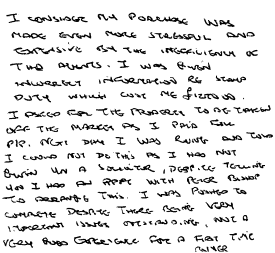 I CONSIDER MY PURCHASE WAS
MADE EVEN MORE STRESSFUL AND
EXPENSIVE BY THE INEFFICIENCY OF
THE AGENTS. I WAS GIVEN
INCORRECT INFORMATION RE STAMP
DUTY WHICH COST ME
I ASKED FOR THE PROPERTY TO BE TAKEN
OFF THE MARKET AS I PAID FULL
NEXT DAY I WAS RUNG AND TOLD
I COULD NOT DO THIS AS I HAD NOT
GIVEN IN A SOLICITOR, DESPITE TELLING
I HAD AN APPT WITH PETER
TO ARRANGE THIS. I WAS PUSHED TO
COMPLETE DESPITE THERE BEING VERY
IMPORTANT ISSUES OUTSTANDING, NOT A
VERY GOOD EXPERIENCE FOR A FIRST TIME
BUYER